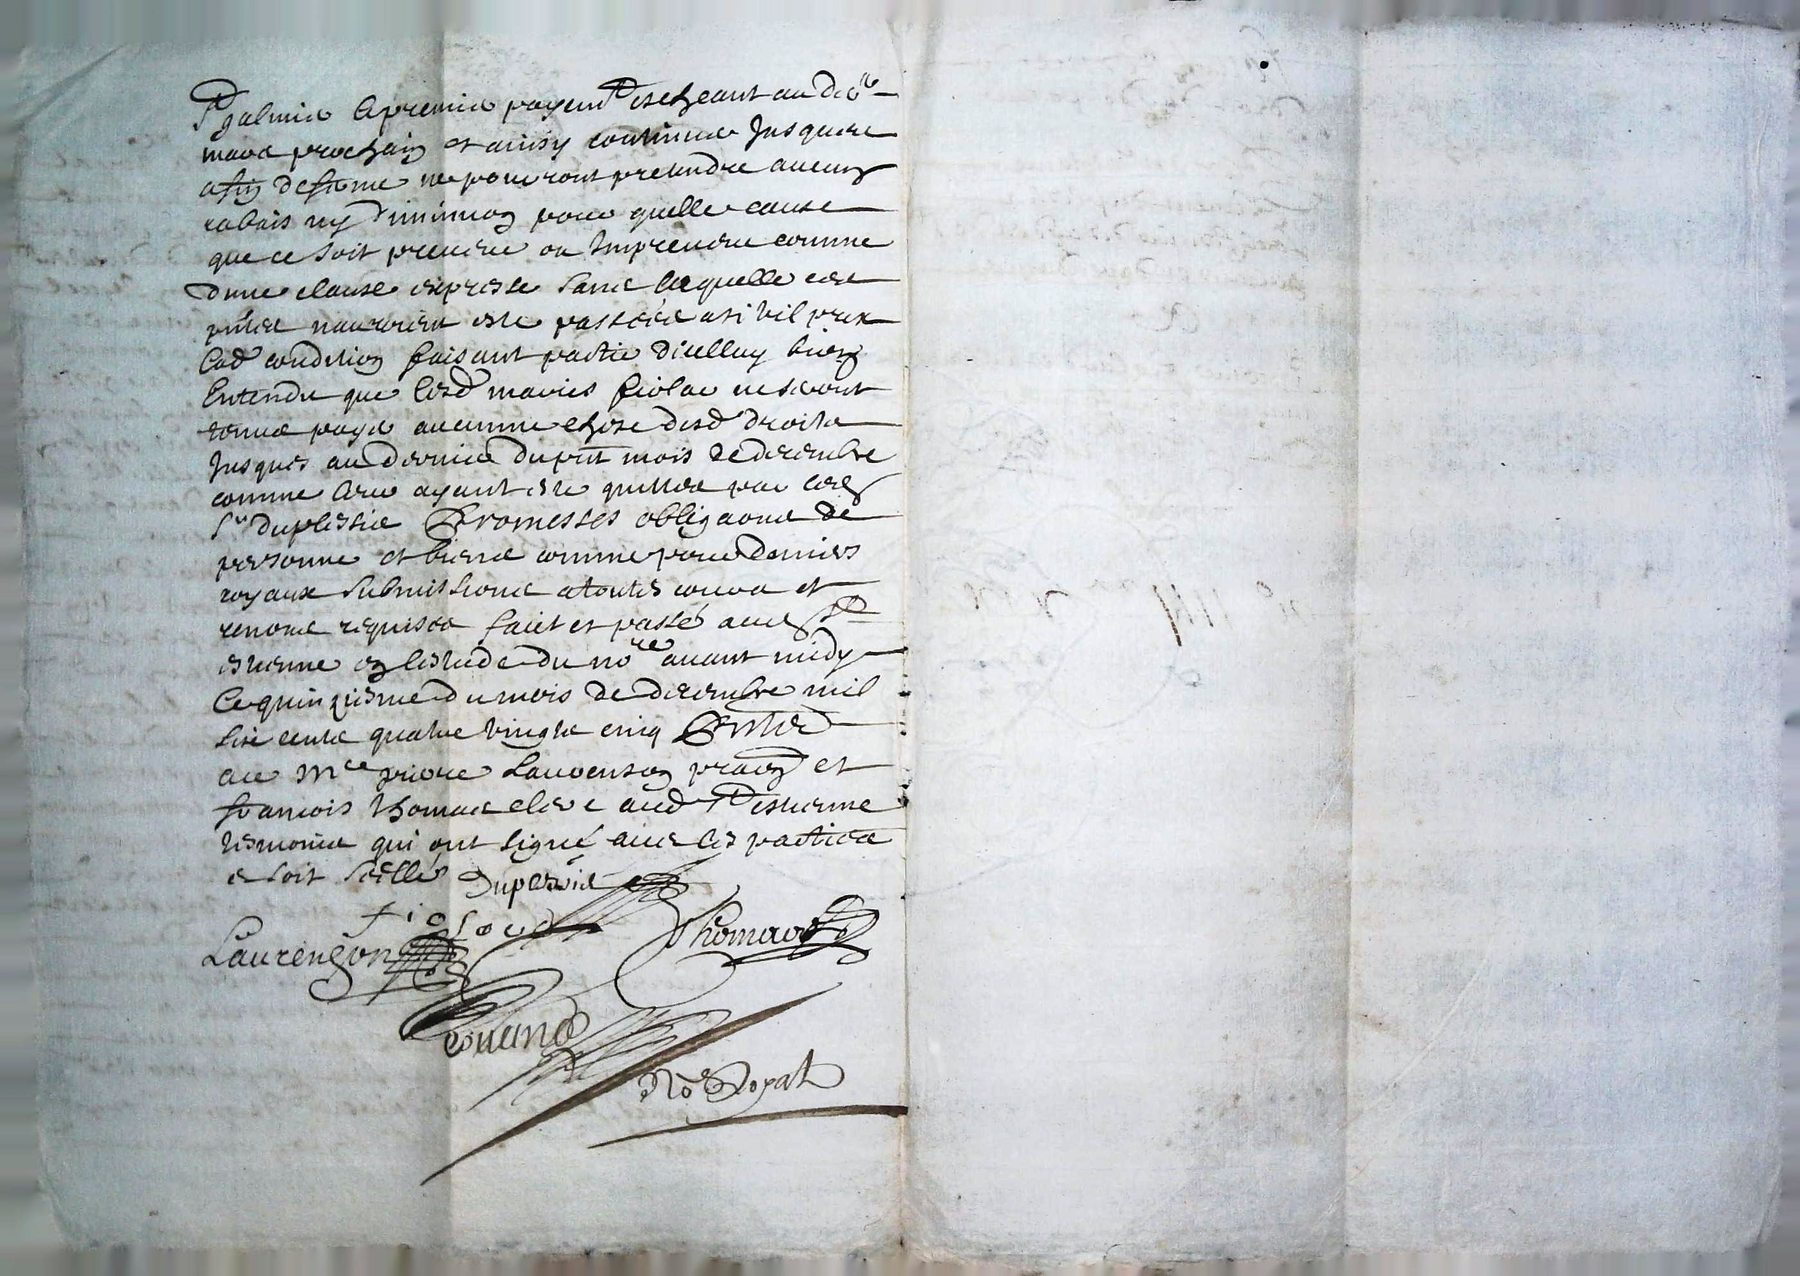 egalmt le premier payemt escheant au der
mars prochain et ainsy continuer jusques
a fin de ferme ne pouront pretendre aucun
rabais ny diminuon pour quelle cause
que ce soit preveue ou impreveue comme
dune clause expresse sans laquelle ces
pntes nauroient esté passées a si vil prix
lad condition faisant partie dicelluy bien
Entendu que lesd mariés fiolac ne seront
tenus payer aucunne chose desd droits
jusques au dernier du pnt mois de decembre
comme leur ayant esté quittes par led
Sr duplessis Promesses obligaons de
personne et biens comme pour deniers
royaux submissions a toutes cours et
renons requises faict et passé aud St
estienne en lestude du nore avant midy
Ce quinziesme du mois de decembre mil
six cents quatre vingts cinq Pnts
au Mre Laurenson praon et
francois thomas clerc aud St estienne
tesmoins qui ont signé avec les parties
e soit scellé Duplessis
fiolac
Laurenson Thomas
No Royal